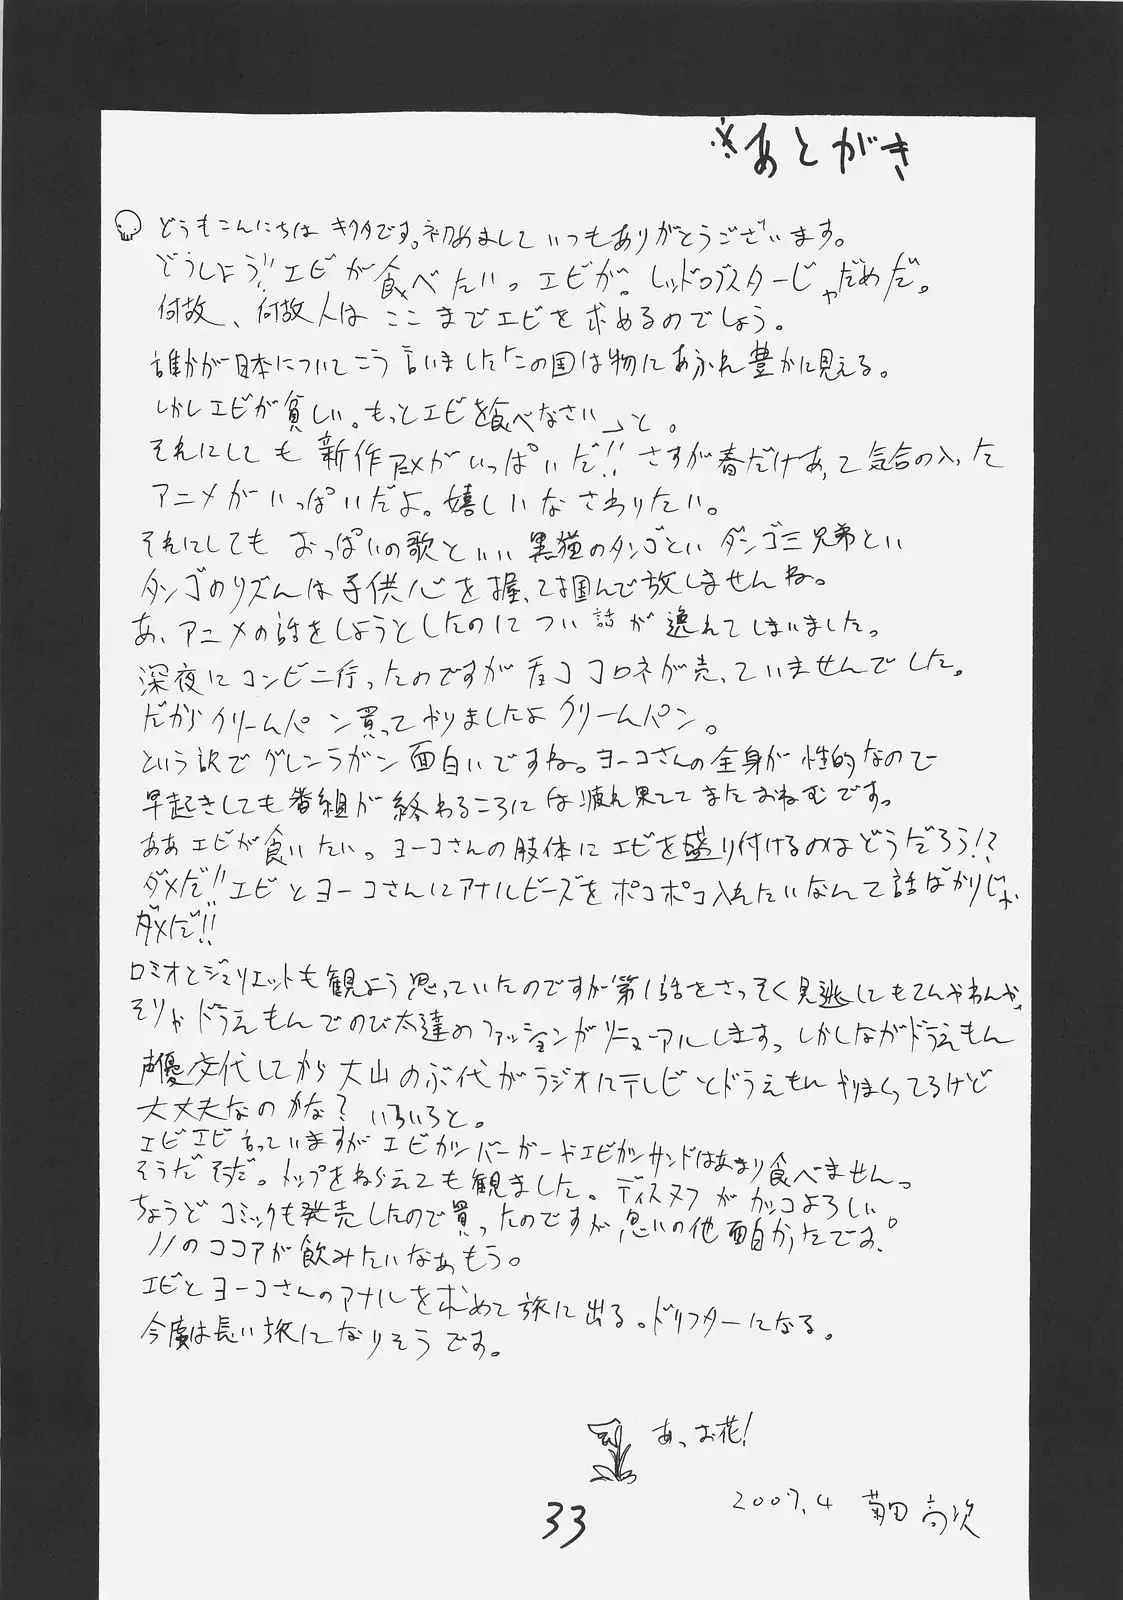 ※あとがき
どうもこんにちは キクタです。初めまして いつもありがとうございます。
どうしよう!! エビが食べたいっ エビが。レッドロブスターじゃだめだ。
何故、何故人は ここまでエビを求めるのでしょう。
誰かが日本についてこう言いました「この国は物にあふれ豊かに見える。
しかしエビが貧しい。もっとエビを食べなさい」と。
それにしても 新作アニメがいっぱいだ!! さすが春だけあって気合の入った
アニメがいっぱいだよ。嬉しいな さわりたい。
それにしても おっぱいの歌といい 黒猫のタンゴといい ダンゴ三兄弟といい
タンゴのリズムは子供心を握って掴んで放しませんね。
あ、アニメの話をしようとしたのについ話が逸れてしまいました。
深夜にコンビニ行ったのですがチョココロネが売っていませんでした。
だからクリームパン買ってやりましたよクリームパン。
という訳でグレンラガン面白いですね。ヨーコさんの全身が性的なので
早起きしても番組が終わるころには疲れ果ててまたおねむです。
ああエビが食いたい。ヨーコさんの肢体にエビを盛り付けるのはどうだろう!?
ダメだ!! エビとヨーコさんにアナルビーズをポコポコ入れたいなんて話ばかりじゃ
ダメだ!!
ロミオとジュリエットも観よう思っていたのですが第1話をさっそく見逃してもてんやわんや、
そりゃドラえもんでのび太達のファッションがリニューアルしますっしかしながドラえもん
声優交代してから大山のぶ代がラジオにテレビとドラえもんやりまくってるけど
大丈夫なのかな? いろいろと。
エビエビ言っていますがエビカツバーガーやエビカツサンドはあまり食べませんっ
そうだそうだ。トップをねらえても観ました。ディスヌフがカッコよろしい
ちょうどコミックも発売したので買ったのですが思いの他面白かったです。
ノノのココアが飲みたいなぁもう。
エビとヨーコさんのアナルを求めて旅に出る。ドリフターになる。
今度は長い旅になりそうです。
あっお花!
2007.4 菊田高次
33